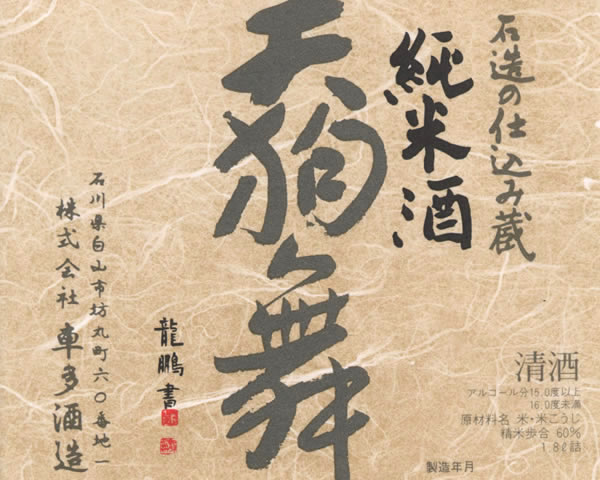 石造の仕込み蔵
純米酒
天狗舞
龍鵬書
石川県白山市坊丸町六〇番地一
株式会社 車多酒造
清酒
アルコール分15.0度以上
16.0度未満
原材料名 米・米こうじ
精米歩合 60%
1.8ℓ詰
製造年月